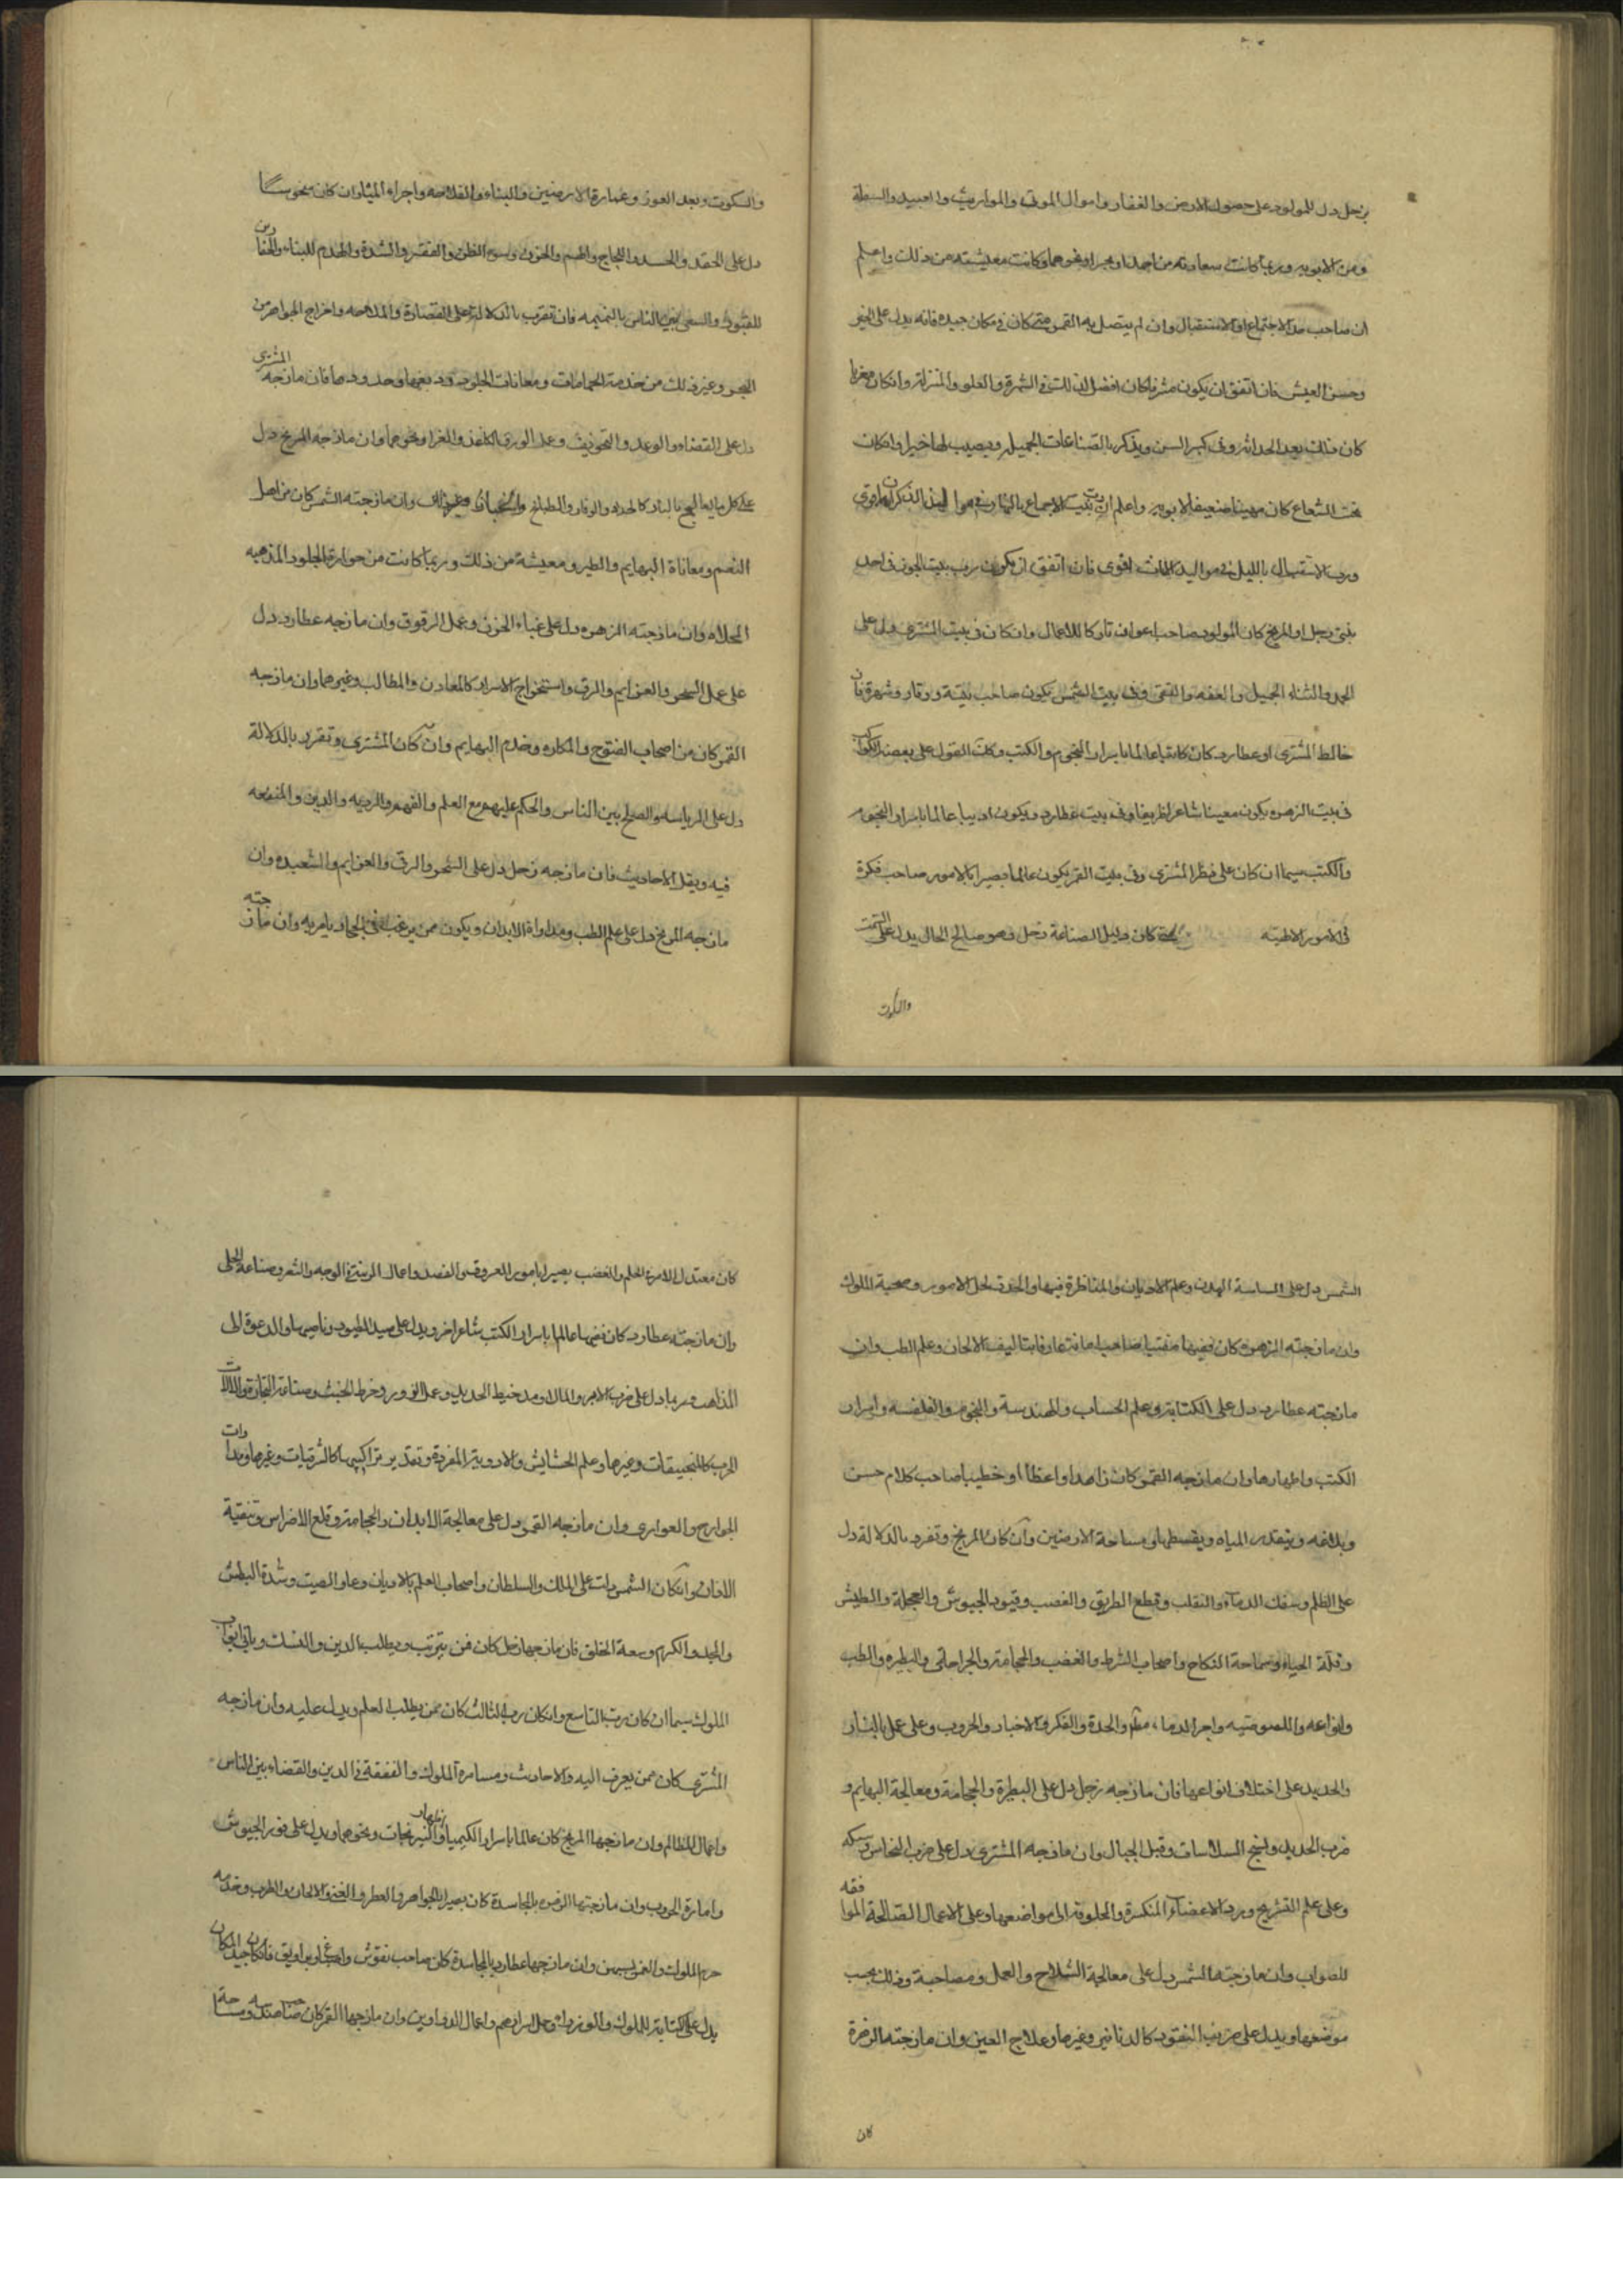 زحل دل للمولود على حصول الارض والعقار واموال الموتى والمواريث والعبيد والسطة
ومن الابوين وربما كانت سعادته من احمد او بحر او نحوهما وكانت معيشته من ذلك واعلم
ان صاحب حد الاجتماع او الاستقبال وان لم يتصل به القمر متى كان في مكان جيد فانه يدل على الخير
وحسن العيش فان اتفق ان يكون مشرقا كان افضل لذلك في الشهرة والعلو والمنزلة وان كان مغربا
كان ذلك بعد الحداثة وفى كبر السن ويذكر بالصناعات الجميلة ويصيب لها خيرا وان كان
تحت الشعاع كان مهينا ضعيفا لابويه واعلم ان رب بيت الاجتماع بالنهار وفي مواليد الذكران اقوى
ورب الاستقبال بالليل في مواليد الاناث اقوى فان اتفق ان يكون رب بيت الجزء في احد
بيتى زحل او المريخ كان المولود صاحب اعوان تاركا للاعمال وان كان في بيت المشترى دل على
الحمد والثناء الجميل والعفه والتقى وفى بيت الشمس يكون صاحب بقية ووقار وشهرة فان
خالط المشترى او عطارد كان كاتبا عالما باسرار النجوم والكتب وكان القول على بعض الكواكب
فى بيت الزهره يكون معينا شاعرا ظريفا وفى بيت عطارد ويكون اديبا عالما باسرار النجوم
والكتب سيما ان كان على نظر المشترى وفى بيت القمر يكون عالما بصيرا بالامور صاحب فكرة
فى الامور الاطية متى كان دليل الصناعة زحل وهو صالح الحال يدل على السمت
والسكوت
والسكوت وبعد الغور وعمارة الارضين والبناء والفلاحه واجراء المياه وان كان منحوسا
دل على الحقد والحسد واللجاج والهم والحزن وسوء الظن والفقر والشدة والهدم للبناء والحفارين
للقبور والسعى بين الناس بالنميمه فان تفرد بالدلالة دل على القصارة والملاحه واخراج الجواهر من
البحر وغير ذلك من خدمة الحمامات ومعانات الجلود ودبغها وحدودها فان مازجه المشترى
دل على القضاء والوعد والتخويف وعمل الورق الكاغذ والغرا ونحوهما وان مازجه المريخ دل
على كل ما يعالج بالنار كالحداد والوقاد والطباخ والخباز وغير ذلك وان مازجته الشمس كان من اهل
النعم ومعاناة البهايم والطير ومعيشة من ذلك وربما كانت من حرارة الجلود المذهبه
المحلاه وان مازجته الزهره دل على غباء الحزن وعمل الرقوق وان مازجه عطارد دل
على عمل السحر والعزايم والرقى واستخراج الاسرار كالمعادن والمطالب وغيرهما وان مازجه
القمر كان من اصحاب الفتوح والمكاره وخدم البهايم وان كان المشترى وتفرد بالدلالة
دل على الرياسه والصلح بين الناس والحكم عليهم مع العلم والفهم والرويه والدين والمنفعه
فيه ويقبل الاحاديث فان مازجه زحل دل على السحر والرقى والعزايم والشعبده وان
مازجه المريخ دل على علم الطب ومداواة الابدان ويكون ممن يرغب في الجهاد يامر به وان مازجته
الشمس دل على السياسة الهدن وعلم الاديان والمناظرة فيها والحدق لحل الامور وصحبة الملوك
وان مازجته الزهره كان فقيها مفتيا صاحب امانة عارفا بتاليف الالحان وعلم الطب وان
مازجته عطارد دل على الكتابة وعلم الحساب والهندسة والنجوم والفلسفه واسرار
الكتب واظهارها وان مازجه القمر كان زاهدا واعظا او خطيبا صاحب كلام حسن
وبلاغه وينقدر المياه ويقسطها فى مساحة الارضين وان كان المريخ وتفرد بالدلالة دل
على الظلم وسفك الدماء والتقلب وقطع الطريق والغصب وقيود الجيوش والعجلة والطيش
وقلة الحياء وسماحة النكاح واصحاب الشرط والغضب والحجامة والجراحات والبطيره والطب
وانواعه واللصوصيه واجرا الدماء معه والحدة والفكر والاخبار والحروب وعلى عمل بالنار
والحديد على اختلاف انواعها فان مازجه زحل دل على البيطرة والحجامة ومعالجة البهايم و
ضرب الحديد ونسج السلاسات وفتل الحبال وان مازجه المشترى دل على ضرب النحاس وسبكه
وعلى علم التشريح ورد الاعضاء المنكسرة والمخلوقه الى مواضعها وعلى الاعمال الصالحة الموافقه
للصواب وان مازجتها الشمس دل على معالجة السلاح والعمل ومصاحبة وذلك بحسب
موضعها ويدل على ضرب النقود كالدنانير وغيرها وعلاج العين وان مازجته الزهرة
كان
كان معتدل الامرة الحلم والغضب بصيرا بامور العروق والفصد واعمال الزينة فى الوجه والشعر وصناعة الحلى
وان مازجته عطارد كان فقيها عالما باسرار الكتب شاعرا خر ويدل على صيد الطيور وناصبها والدعوة الى
المذاهب وربما دل على ضرب الابر والمال ومد خيط الحديد وعمل الزور وخرط الخشب وصناعة النجارة والالات
الحرب كالمنجنيقات وغيرها وعلم الحشايش والادوية المفردة وتقدير تراكيبها كالشرقيات وغيرها ومداوات
الجوارح والعوارى وان مازجه القمر دل على معالجة الابدان والحجامة وقلع الاضراس وتنقية
الاذان وان كان الشمس دلت على الملك والسلطان واصحاب العلم بالاديان وعلو الصيت وشدة البطش
والمجد والكرم وسعة الخلق فان مازجها زحل كان فمن يترتب ويطلب الدين والنسك وياتى ابواب
الملوك سيما ان كان رب التاسع وان كان رب الثالث كان ممن يطلب العلم ويدل عليه وان مازجه
المشترى كان ممن يعرف اليه والاحاديث ومسامرة الملوك والفقهة فى الدين والقضاء بين الناس
واعمال المظالم وان مازجها المريخ كان عالما باسرار الكيمياء والنيرنجات ونحوهما ويدل على قود الجيوش
وامارة الحروب وان مازجتها الزهره بالمجاسدة كان بصيرا بالجواهر والعطر والغنى والالحان والطرب وخدمه
حرم الملوك والعز لسيرهن وان مازجها عطارد بالمجاسدة كان صاحب نقوش واصباغ او براويق فان كان جيد المكان
يدل على كتابة للملوك والوزراء وحل اسرارهم واعمال الدواوين وان مازجها القمر كان صاحب صنعه ومساحة